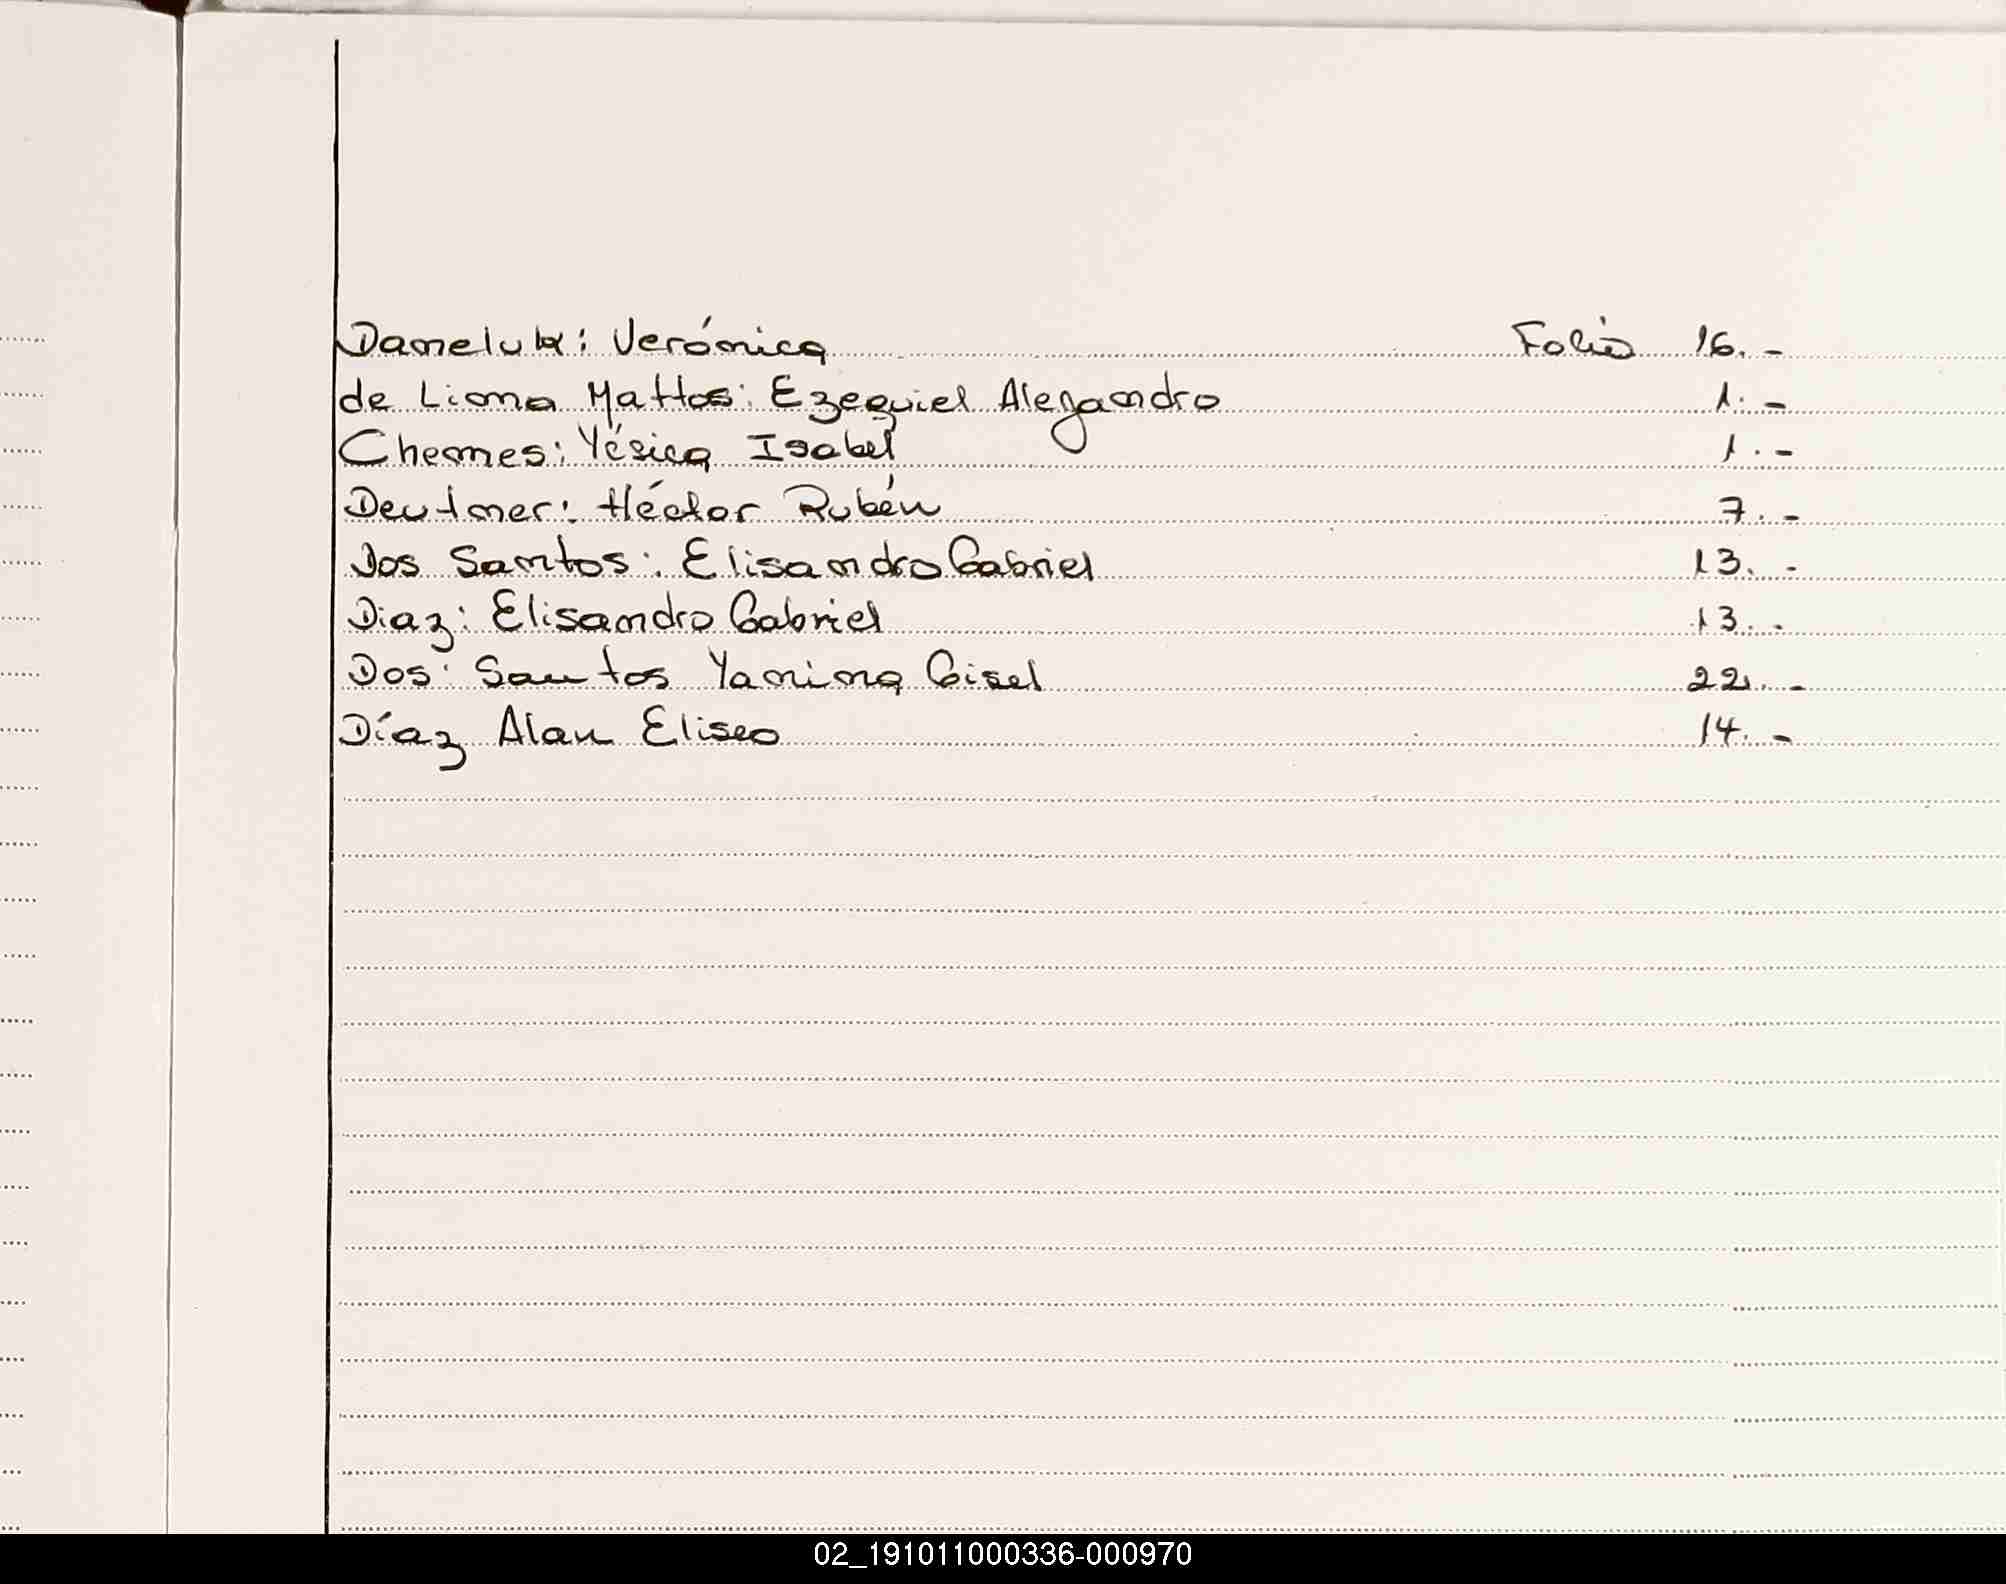 Verónica Folio 16.-
de Lima Mattos: Ezequiel Alejandro 1.-
Chemes: Yésica Isabel 1.-
Deutner: Héctor Rubén 7.-
Dos Santos: Elisandro Gabriel 13.-
Diaz: Elisandro Gabriel 13.-
Dos: Santos Yanina Gisel 22.-
Díaz Alan Eliseo 14.-
02_191011000336-000970